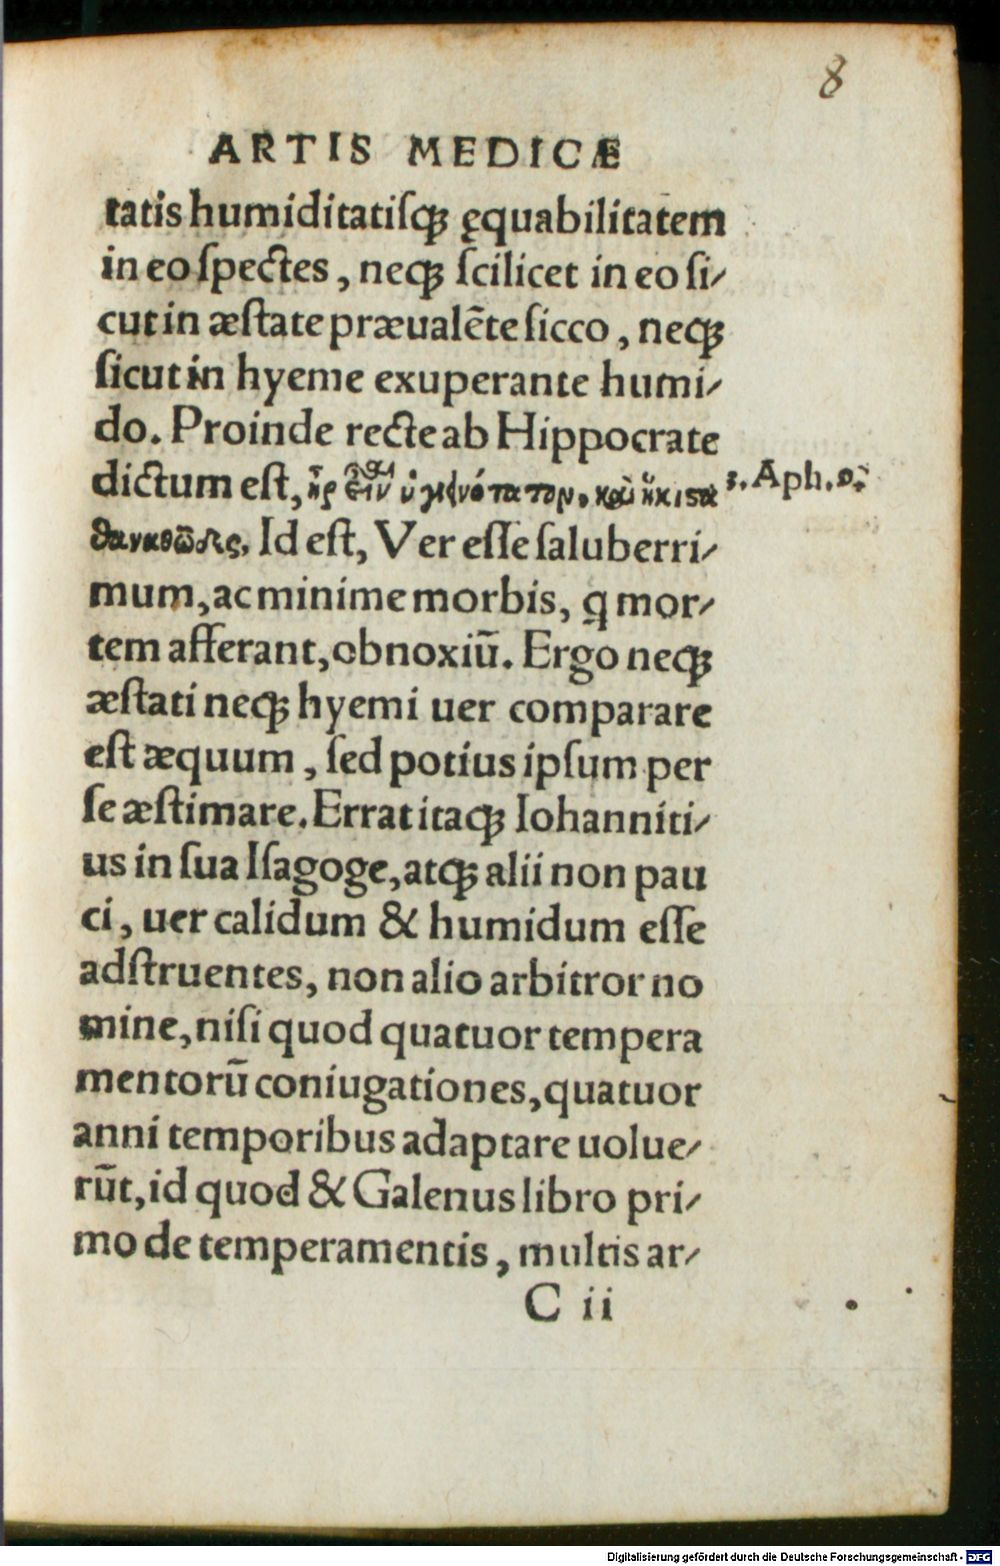 8
ARTIS MEDICÆ
tatis humiditatiſqꝫ ęquabilitatem
in eo ſpectes, neqꝫ ſcilicet in eo ſi⸗
cut in æſtate præualẽte ſicco, neqꝫ
ſicut in hyeme exuperante humi⸗
do. Proinde recte ab Hippocrate
dictum eſt, ἦρ ὑγιεινότατον, καὶ ἥκιστα
θανατῶδες. Id eſt, Ver eſſe ſaluberri⸗
mum, ac minime morbis, q̃ mor⸗
tem afferant, obnoxiũ. Ergo neqꝫ
æſtati neqꝫ hyemi uer comparare
eſt æquum, ſed potius ipſum per
ſe æſtimare. Errat itaqꝫ Iohanniti⸗
us in ſua Iſagoge, atqꝫ alii non pau
ci, uer calidum & humidum eſſe
adſtruentes, non alio arbitror no
mine, niſi quod quatuor tempera
mentorũ coniugationes, quatuor
anni temporibus adaptare uolue⸗
rũt, id quod & Galenus libro pri⸗
mo de temperamentis, multis ar⸗
C ii
Aph.
Digitalisierung gefördert durch die Deutsche Forschungsgemeinschaft - DFG